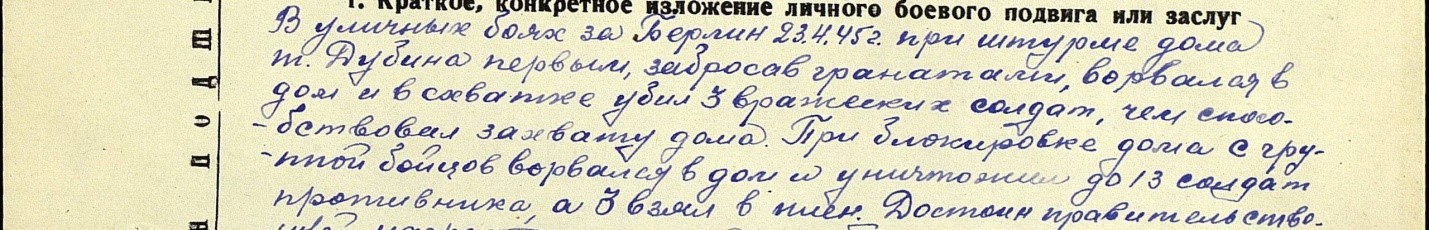 1. Краткое, конкретное изложение личного боевого подвига или заслуг
В уличных боях за Берлин 23.4.45г. при штурме дома
т. Дубина первым, забросав гранатами, ворвался в
дом и в схватке убил 3 вражеских солдат, чем спосо-
-бствовал захвату дома. При блокировке дома с гру-
-ппой бойцов ворвался в дом и уничтожил до 13 солдат
противника, а 3 взял в плен. Достоин правительство-